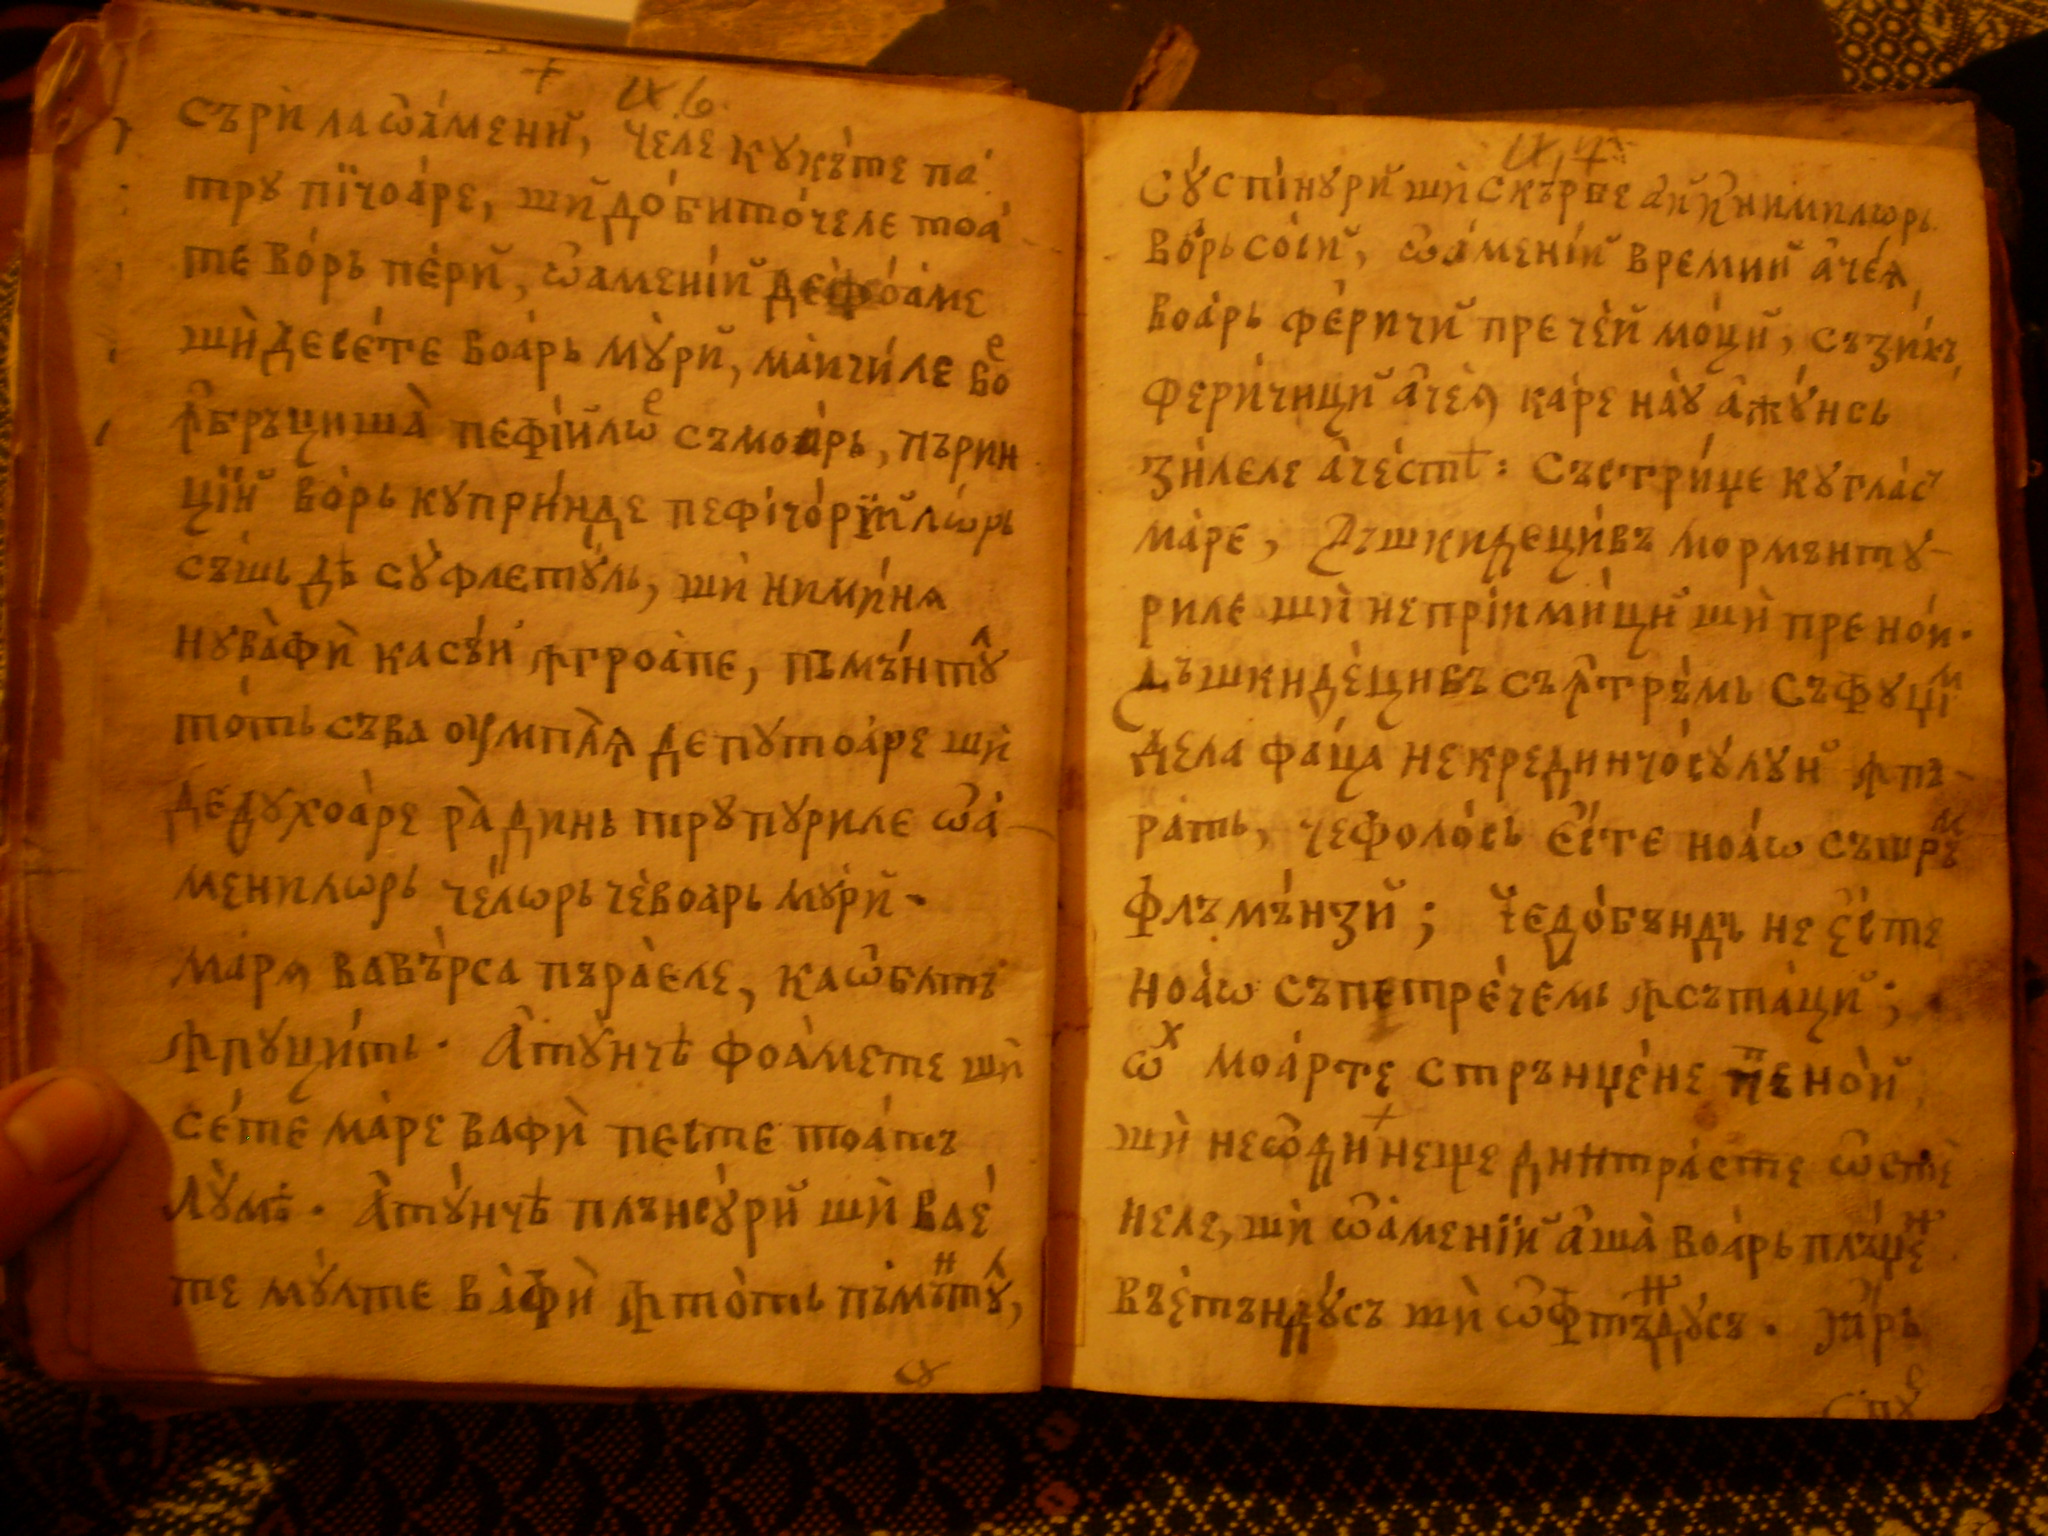 IX, 6.
съри̑ ла ѡ҆а́мени̑, челе кукъ́те па́
тру пїчоа́ре, ши̑ до́биточе́ле тоа́
те во́рь пе́ри̑, ѡ҆амені́и̑ де фоа́ме
ши̑ де се́те воа́рь му́ри̑, ма́ичи́ле во
ꙟбръциша̀ пе фі́и̑лѡ съ моа́рь, пърин
ці́и̑ во́рь купри́нде пе фічо́рїи̑ лѡ́рь
съ́шь дѣ су́флету́ль, ши̑ ними́нѧ
ну ва̀ фѝ ка съ́и̑ ꙟгроа́пе, пъмъ́нтꙋл
то́ть съ ва оумплѧ̀ де путоа́ре ши̑
де духоа́ре ра̀ динь трупуриле ѡ҆а́
менилѡрь че́лѡрь че воарь му́ри̑.
ма́рѧ ва въ́рса пъра́еле, ка ѡ҆ балтъ
ꙟпуци́ть. А҆ту́нчѣ фоа́мете ши̑
се́те ма́ре ва фѝ песте тоа́тъ
лу́мѣ. А҆ту́нчѣ плънсу́ри̑ ши̑ вае́
те му́лте ва̀ фѝ ꙟ то́ть пъмънтꙋ́л,
су
IX, 7
Су́спі́нури̑ ши̑ скъ́рбе а҆и̑ и҆нимилѡрь
во́рь со́си̑, ѡ҆а́мені́и̑ времий а҆че́ѧ
воа́рь фе́ричи̑ пре че́и̑ мо́рци̑, съ зи́къ,
фери́чици̑ а҆че́ѧ ка́ре на́у а҆жу́нсь
зи́леле а҆че́стѣ: съ стри́ѱе ку глась
ма́ре, дъшкидеци́въ мормънту
риле ши̑ не прїими́ци̑ ши̑ пре но́и.
дъшкиде́цивъ съ ꙟтръ́мь съ фуџім
дела фа́ца некрединчо́сулуи̑ ꙟпъ
ра́ть, че фоло́сь е҆́сте ноа́ѡ съ ѡръм
флъмъ́нзи̑; че до́бъндъ не е҆́сте
ноа́ѡ съ петре́чемь ꙟ сътъ́ци̑;
ѡ҆х моа́рте стрънџе́не пе но́и̑
ши̑ не ѡ҆дихнеще динтра́сте ѡ҆сте
неле, ши̑ ѡ҆а́менїи̑ а҆ша̀ воа́рь плънџе
въе́тъндꙋсъ ши̑ ѡ҆фтъндꙋсъ. ꙗ҆рь
спу